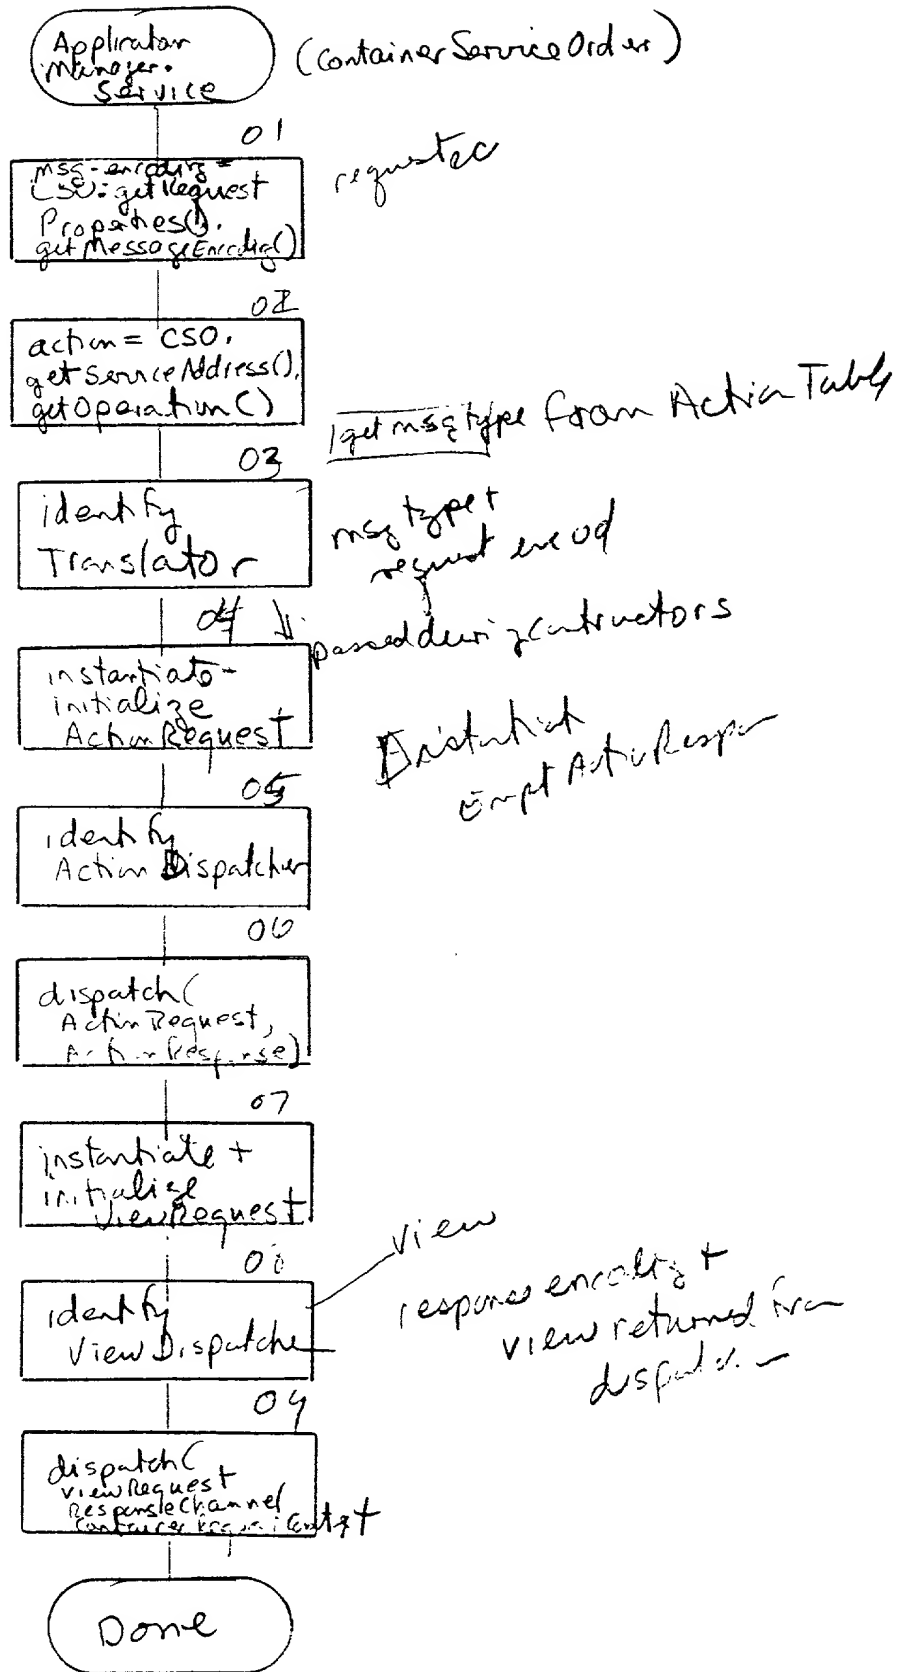 Application
Manager.
Service
(ContainerServiceOrder)
01
msg-encoding =
CSO.getRequest
Properties().
getMessageEncoding()
02
action = CSO.
getServiceAddress().
getOperation()
get msg type from Action Table
03
identify
Translator
msg type +
request encod
04
passed during contructors
instantiate -
initialize
ActionRequest
05
identify
Action Dispatcher
06
dispatch(
ActionRequest,
ActionResponse)
07
instantiate +
initialize
ViewRequest
view
identify
ViewDispatcher
response encoding +
view returned from
09
dispatch(
viewRequest
ResponseChannel
Done